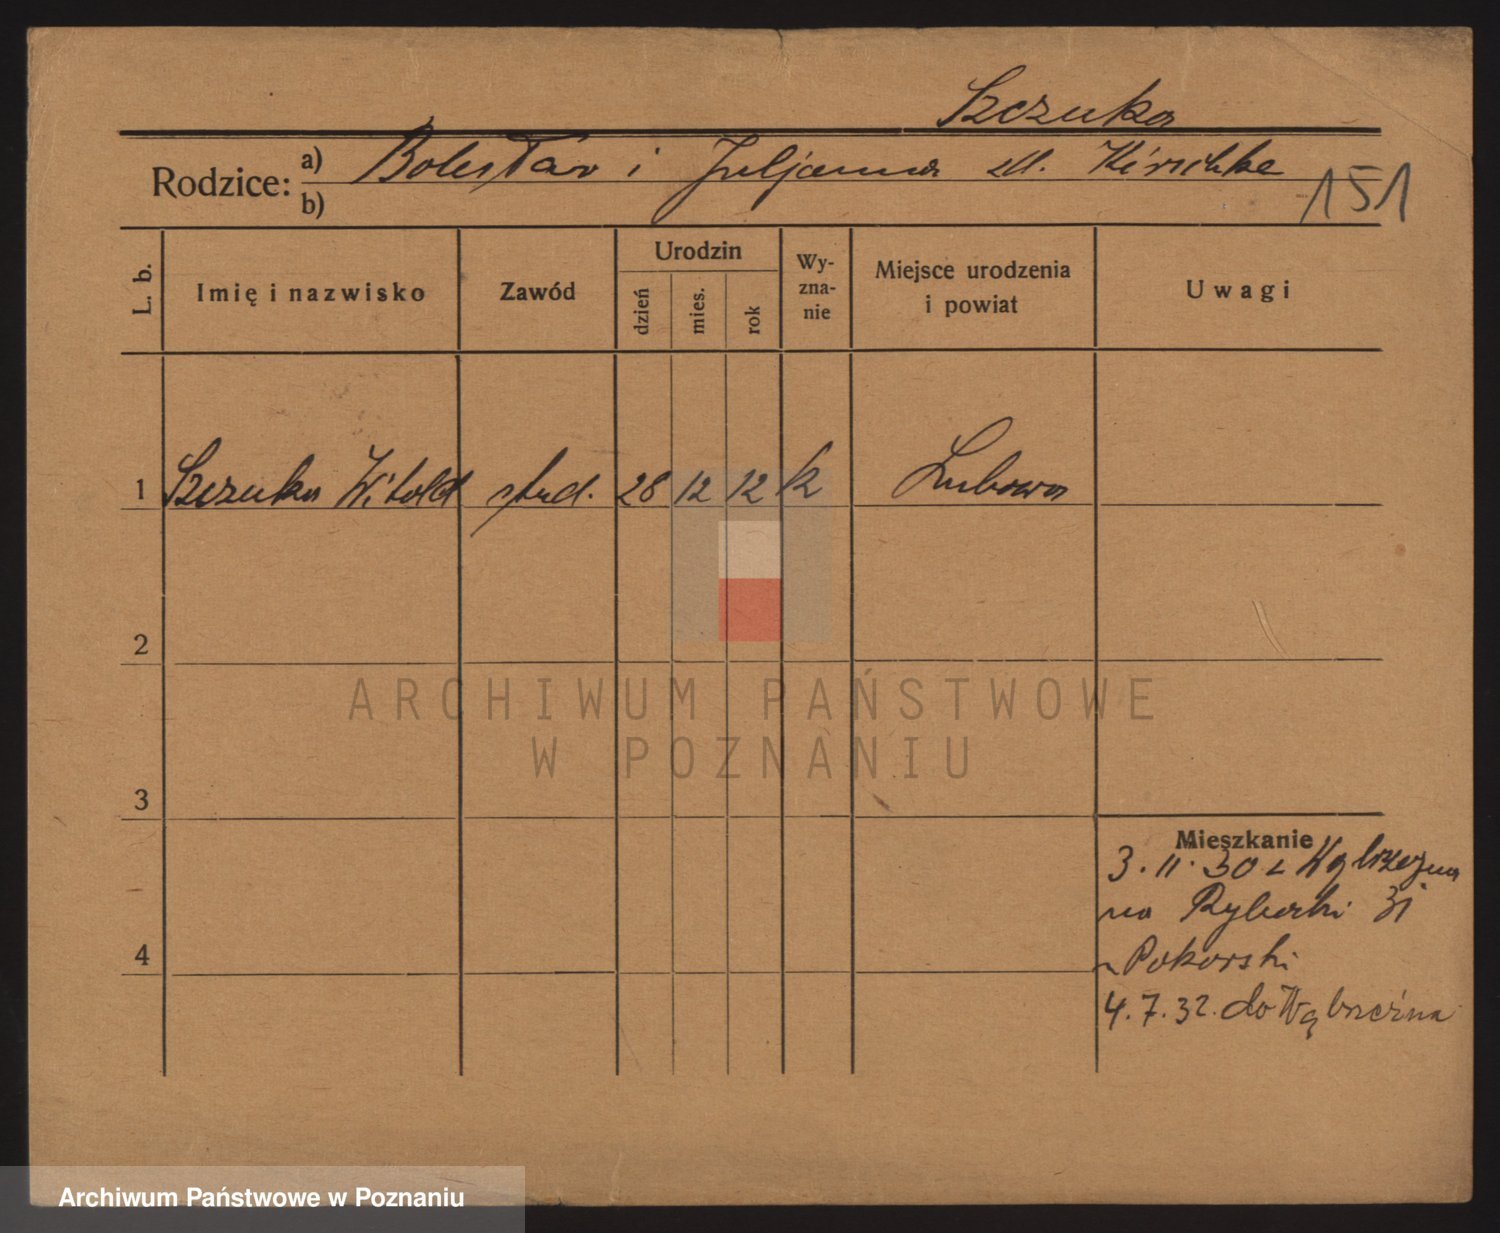 Szczuka
Rodzice: a) Bolesław i Juljanna zd. Kirschke
b)
151
L. b. Imię i nazwisko Zawód Urodzin dzień mies. rok Wy-zna-nie Miejsce urodzenia i powiat Uwagi
1 Szczuka Witold stud. 28 12 12 k Lubowo
2
ARCHIWUM PAŃSTWOWE
W POZNANIU
3
Mieszkanie
3.11.30 z Wąbrzeźna
na Rybaki 31
Pokorski
4
4.7.32. do Wąbrzeźna
Archiwum Państwowe w Poznaniu